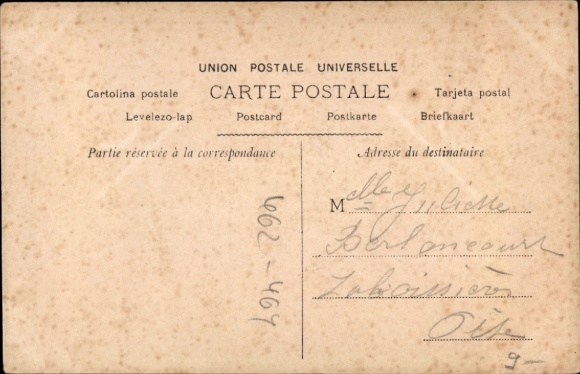 UNION POSTALE UNIVERSELLE
Cartolina postale CARTE POSTALE Tarjeta postal
Levelezo-lap Postcard Postkarte Briefkaart
Partie réservée à la correspondance
Adresse du destinataire
Melle Juliette
Berlancourt
Laboissière
Oise
662-469
9-